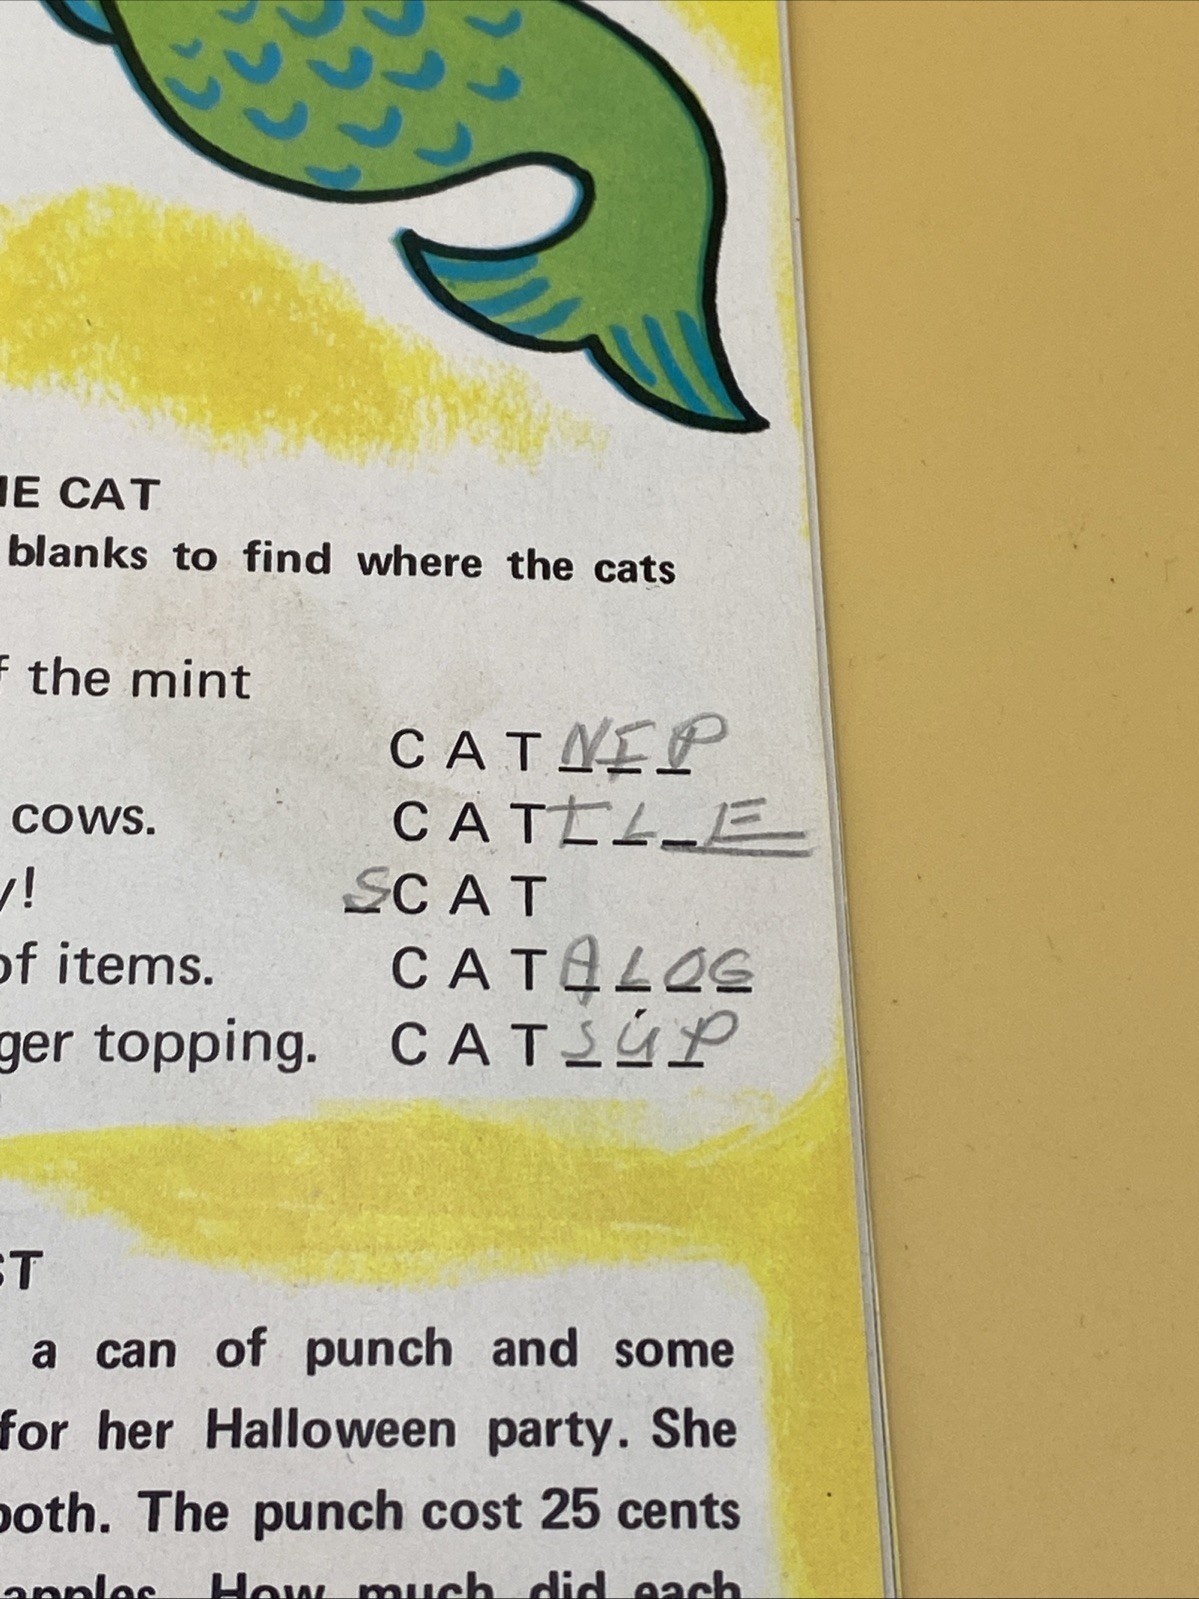 IE CAT
blanks to find where the cats
f the mint
CATNIP
cows. CATTL_E
y! SCAT
of items. CATALOG
ger topping. CATSUP
ST
a can of punch and some
for her Halloween party. She
both. The punch cost 25 cents
apples. How much did each